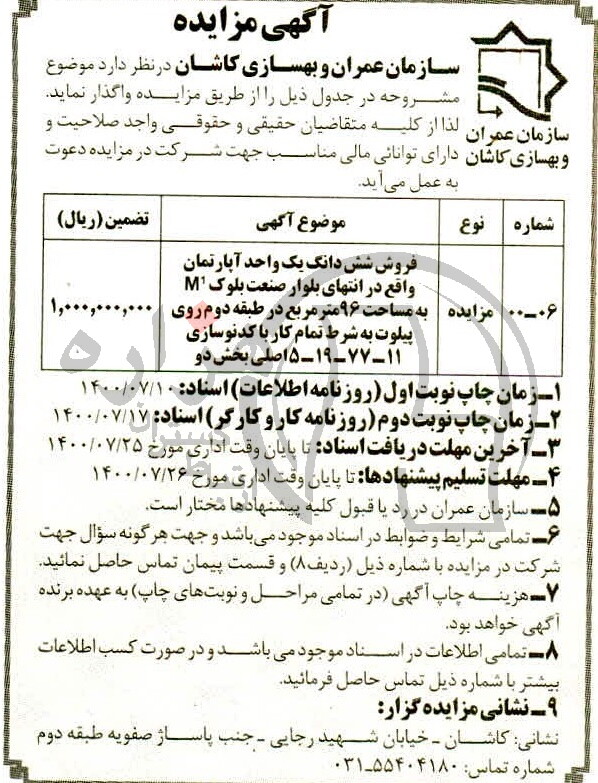 آگهی مزایده
سازمان عمران و بهسازی کاشان در نظر دارد موضوع
مشروحه در جدول ذیل را از طریق مزایده واگذار نماید.
لذا از کلیه متقاضیان حقیقی و حقوقی واجد صلاحیت و
دارای توانائی مالی مناسب جهت شرکت در مزایده دعوت
به عمل می‌آید.
سازمان عمران
و بهسازی کاشان
شماره نوع موضوع آگهی تضمین (ریال)
۰۶-۰۰ مزایده
فروش شش دانگ یک واحد آپارتمان
واقع در انتهای بلوار صنعت بلوک M۱
به مساحت ۹۶ متر مربع در طبقه دوم روی
پیلوت به شرط تمام کار با کد نوسازی
۱۱-۷۷-۱۹-۵ اصلی بخش دو
۱,۰۰۰,۰۰۰,۰۰۰
۱- زمان چاپ نوبت اول (روزنامه اطلاعات) اسناد: ۱۴۰۰/۰۷/۱۰
۲- زمان چاپ نوبت دوم (روزنامه کار و کارگر) اسناد: ۱۴۰۰/۰۷/۱۷
۳- آخرین مهلت دریافت اسناد: تا پایان وقت اداری مورخ ۱۴۰۰/۰۷/۲۵
۴- مهلت تسلیم پیشنهادها: تا پایان وقت اداری مورخ ۱۴۰۰/۰۷/۲۶
۵- سازمان عمران در رد یا قبول کلیه پیشنهادها مختار است.
۶- تمامی شرایط و ضوابط در اسناد موجود می‌باشد و جهت هرگونه سؤال جهت
شرکت در مزایده با شماره ذیل (ردیف ۸) و قسمت پیمان تماس حاصل نمائید.
۷- هزینه چاپ آگهی (در تمامی مراحل و نوبت‌های چاپ) به عهده برنده
آگهی خواهد بود.
۸- تمامی اطلاعات در اسناد موجود می باشد و در صورت کسب اطلاعات
بیشتر با شماره ذیل تماس حاصل فرمائید.
۹- نشانی مزایده گزار:
نشانی: کاشان - خیابان شهید رجایی - جنب پاساژ صفویه طبقه دوم
شماره تماس: ۵۵۴۰۴۱۸۰-۰۳۱